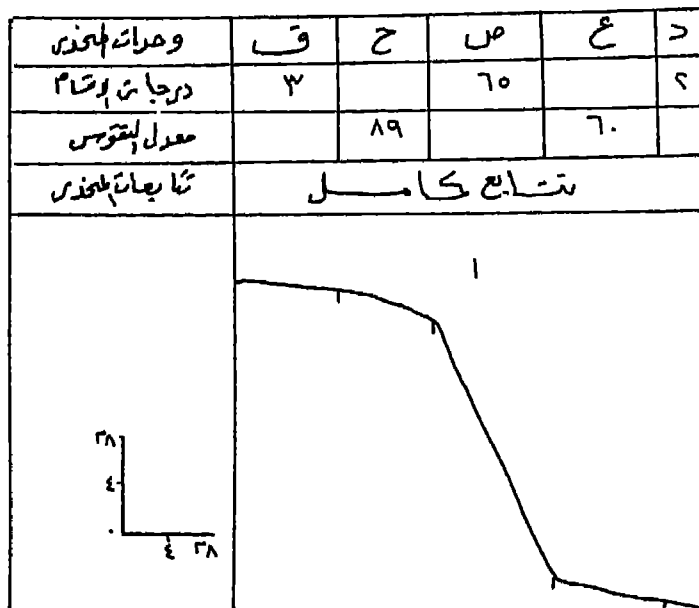 وحدات المنحدر ق ح ص ع د
درجات الانقسام ٣ ٦٥ ٢
معدل التقوس ٨٩ ٦٠
تتابعات المنحدر تتابع كامل
١
٣٨
٤
٠
٤ ٣٨